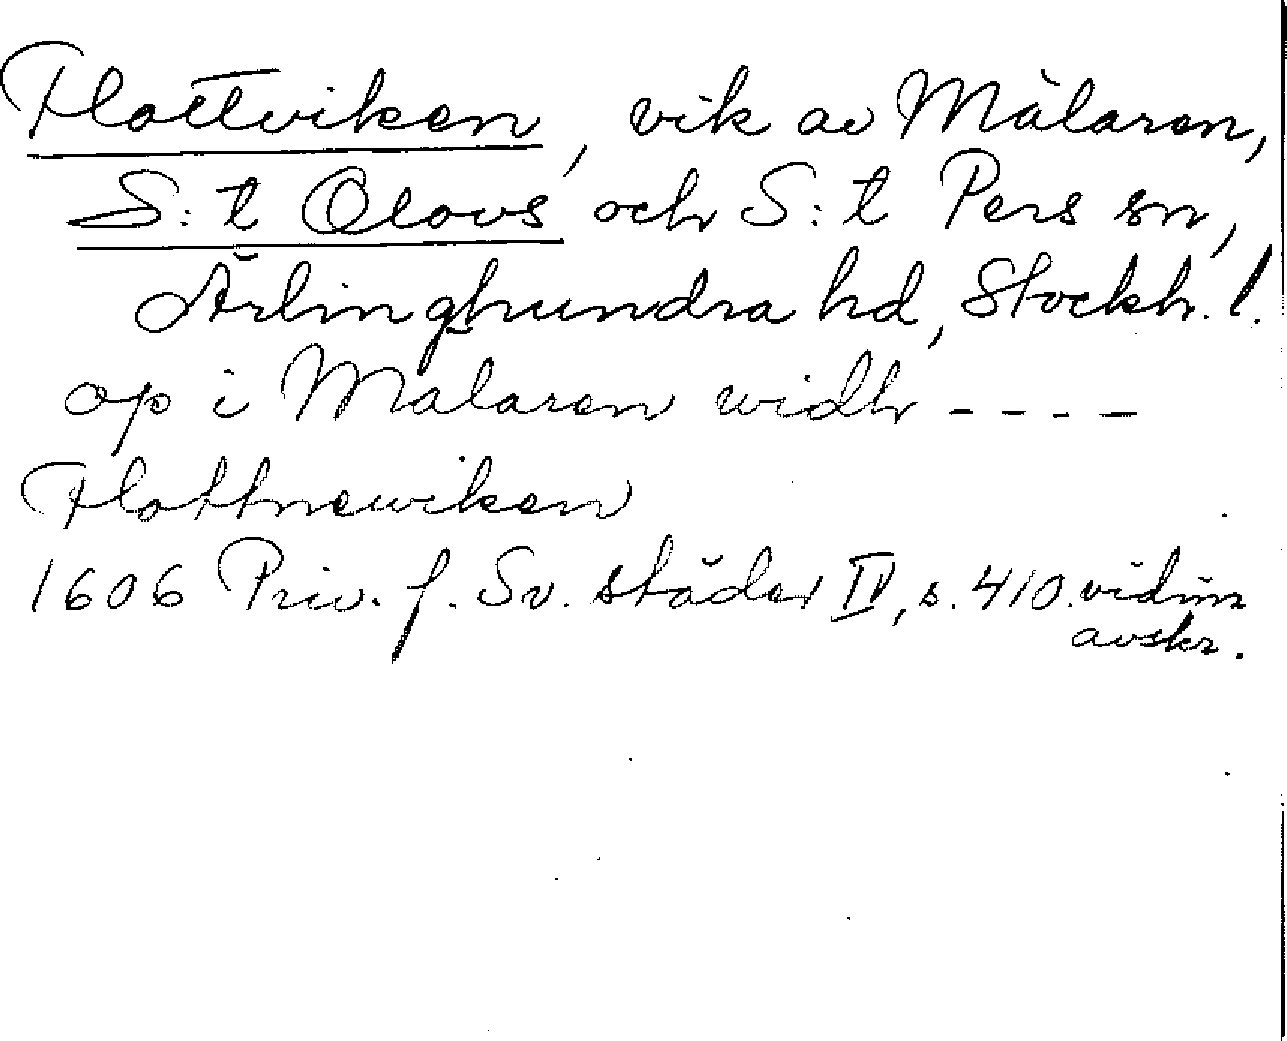 Flottviken, vik av Mälaren,
S:t Olovs och S:t Pers sn,
Ärlinghundra hd, Stockh. l.
op i Malaren widh ----
Flottnewiken
1606 Priv. f. Sv. städer IV, s. 410. vidim
avskr.